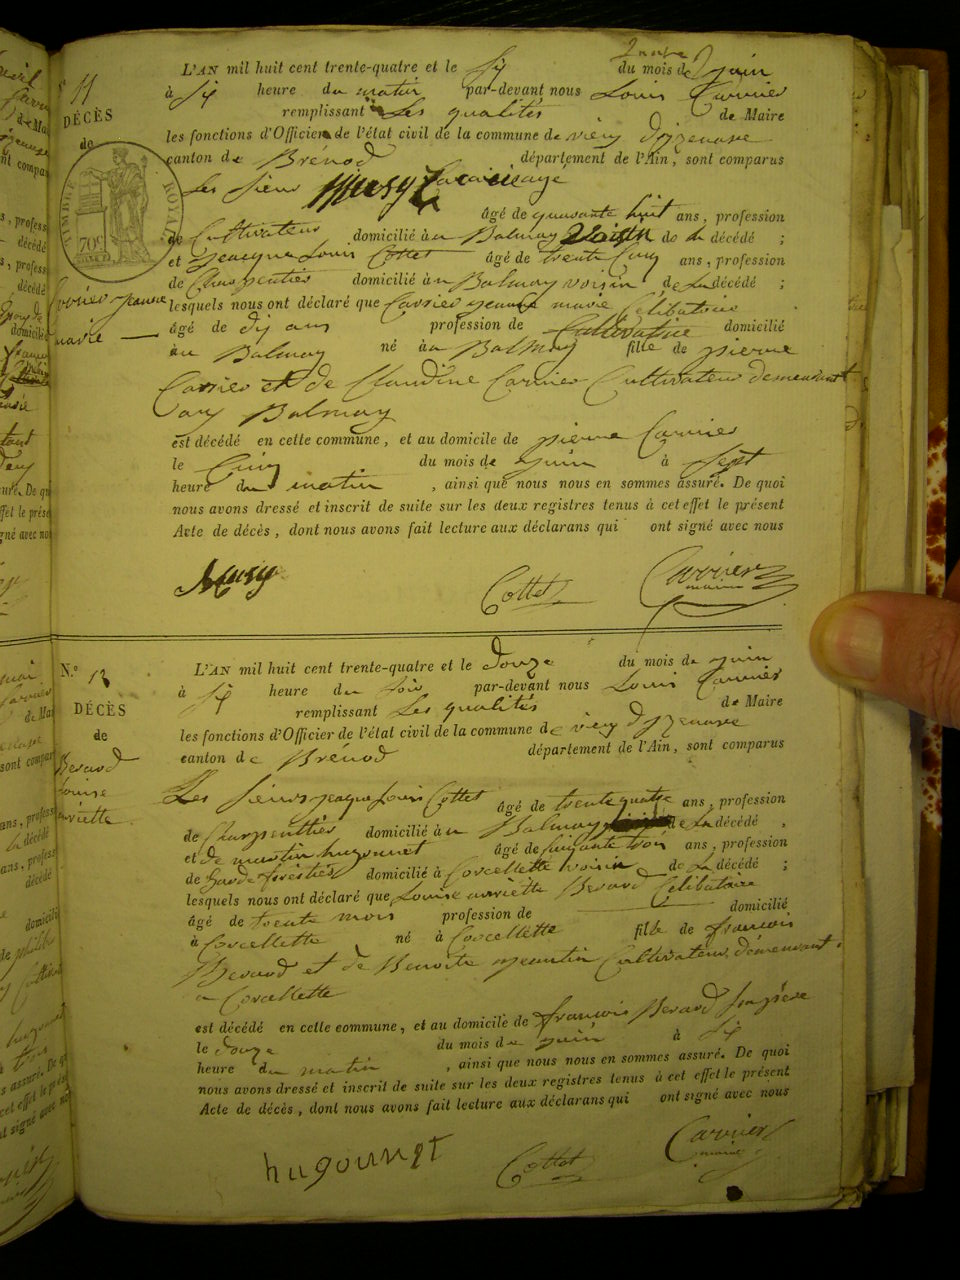 N.° 11
DÉCÈS
de
Carrier jeanne
marie
TIMBRE ROYAL
70c
L'AN mil huit cent trente-quatre et le six du mois de juin
à six heure du matin par-devant nous Louis Carrier
remplissant Les qualités de Maire
les fonctions d'Officier de l'état civil de la commune de vieu dizenave
canton de Brénod département de l'Ain, sont comparus
Les sieur
âgé de quarante huit ans, profession
de Cultivateur domicilié à au Balmay voisin de la décédé ;
et jeacque Louis Cottet âgé de trente Cinq ans, profession
de Charpentier domicilié à au Balmay voisin de La décédé ;
lesquels nous ont déclaré que Carrier jeanne marie Célibataire
âgé de dix ans profession de Cultivatrice domicilié
au Balmay né à au Balmay fille de pierre
Carrier et de Claudine Carrier Cultivateur demeurant
au Balmay
est décédé en cette commune, et au domicile de pierre Carrier
le Cinq du mois de juin à sept
heure du matin , ainsi que nous nous en sommes assuré. De quoi
nous avons dressé et inscrit de suite sur les deux registres tenus à cet effet le présent
Acte de décès, dont nous avons fait lecture aux déclarans qui ont signé avec nous
Musy Cottet Carrier
maire
N.° 12
DÉCÈS
de
Berard
Louise
L'AN mil huit cent trente-quatre et le douze du mois de juin
à six heure du soir par-devant nous Louis Carrier
remplissant Les qualités de Maire
les fonctions d'Officier de l'état civil de la commune de vieu dizenave
canton de Brénod département de l'Ain, sont comparus
Les sieurs jeaque Louis Cottet âgé de trente quatre ans, profession
de Charpentier domicilié à au Balmay de La décédé ,
et de martin hugonnet âgé de soixante trois ans, profession
de Garde forestier domicilié à Corcellette voisin de La décédé ;
lesquels nous ont déclaré que Louise Berard Célibataire
âgé de trente mois profession de domicilié
à Corcellette né à Corcellette fille de francois
Berard et de Benoite jeantin Cultivateur demeurant
a Corcellette
est décédé en cette commune, et au domicile de francois Berard son père
le douze du mois de juin à six
heure du matin , ainsi que nous nous en sommes assuré. De quoi
nous avons dressé et inscrit de suite sur les deux registres tenus à cet effet le présent
Acte de décès, dont nous avons fait lecture aux déclarans qui ont signé avec nous
hugounet Cottet Carrier
maire